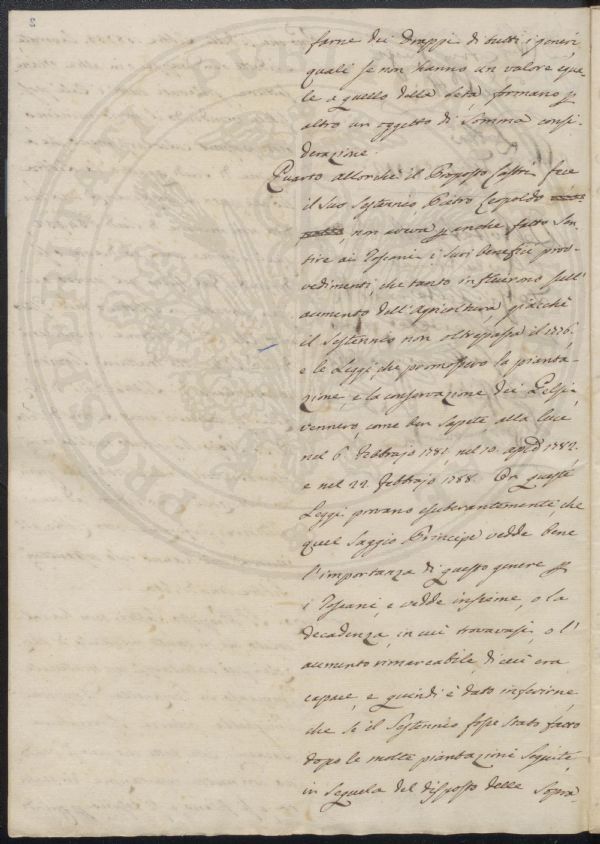 farne dei Drappi di tutti i generi
quali se non hanno un valore egua
le a quello della seta, formano p
altro un oggetto di somma consi-
derazione.
Quarto allorchè il Proposto Lastri fece
il suo Sessennio, Pietro Leopoldo
non aveva p anche fatto sen-
tire ai Toscani i suoi benefici prov-
vedimenti, che tanto influirono sull'
aumento dell'Agricoltura, giacchè
il Sessennio non oltrepassa il 1776.
e le Leggi, che promossero la pianta-
zione, e la conservazione dei Gelsi
vennero, come ben sapete alla luce
nel 6. Febbrajo 1781. nel 10. aple 1782.
e nel 22. Febbrajo 1788. Or queste
Leggi provano esuberantemente, che
quel Saggio Principe vedde bene
l'importanza di questo genere p
i Toscani, e vedde insieme, o la
decadenza, in cui trovavasi, o l'
aumento rimarcabile, di cui era
capace, e quindi è dato inferirne,
che se il Sessennio fosse stato fatto
dopo le molte piantazioni seguite
in sequela del disposto delle sopra